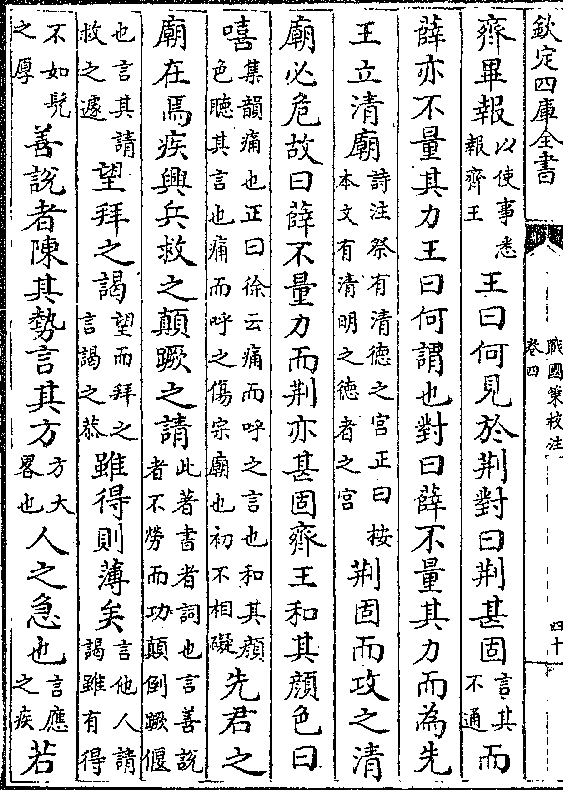 欽定四庫全書
戰國策校注
卷四
四十
齊畢報以使事悉報齊王王曰何見於荆對曰荆甚固言其不通而
薛亦不量其力王曰何謂也對曰薛不量其力而為先
王立清廟詩注祭有清德之宮正曰按本文有清明之德者之宮荆固而攻之清
廟必危故曰薛不量力而荆亦甚固齊王和其顔色曰
嘻集韻痛也正曰徐云痛而呼之言也和其顔色聽其言也痛而呼之傷宗廟也初不相礙先君之
廟在焉疾興兵救之顛蹶之請此著書者詞也言善說者不勞而功顛倒蹶偃
也言其請救之遽望拜之謁望而拜之言謁之恭雖得則薄矣言他人請謁雖有得
不如髡之厚善說者陳其勢言其方方大畧也人之急也言應之疾若